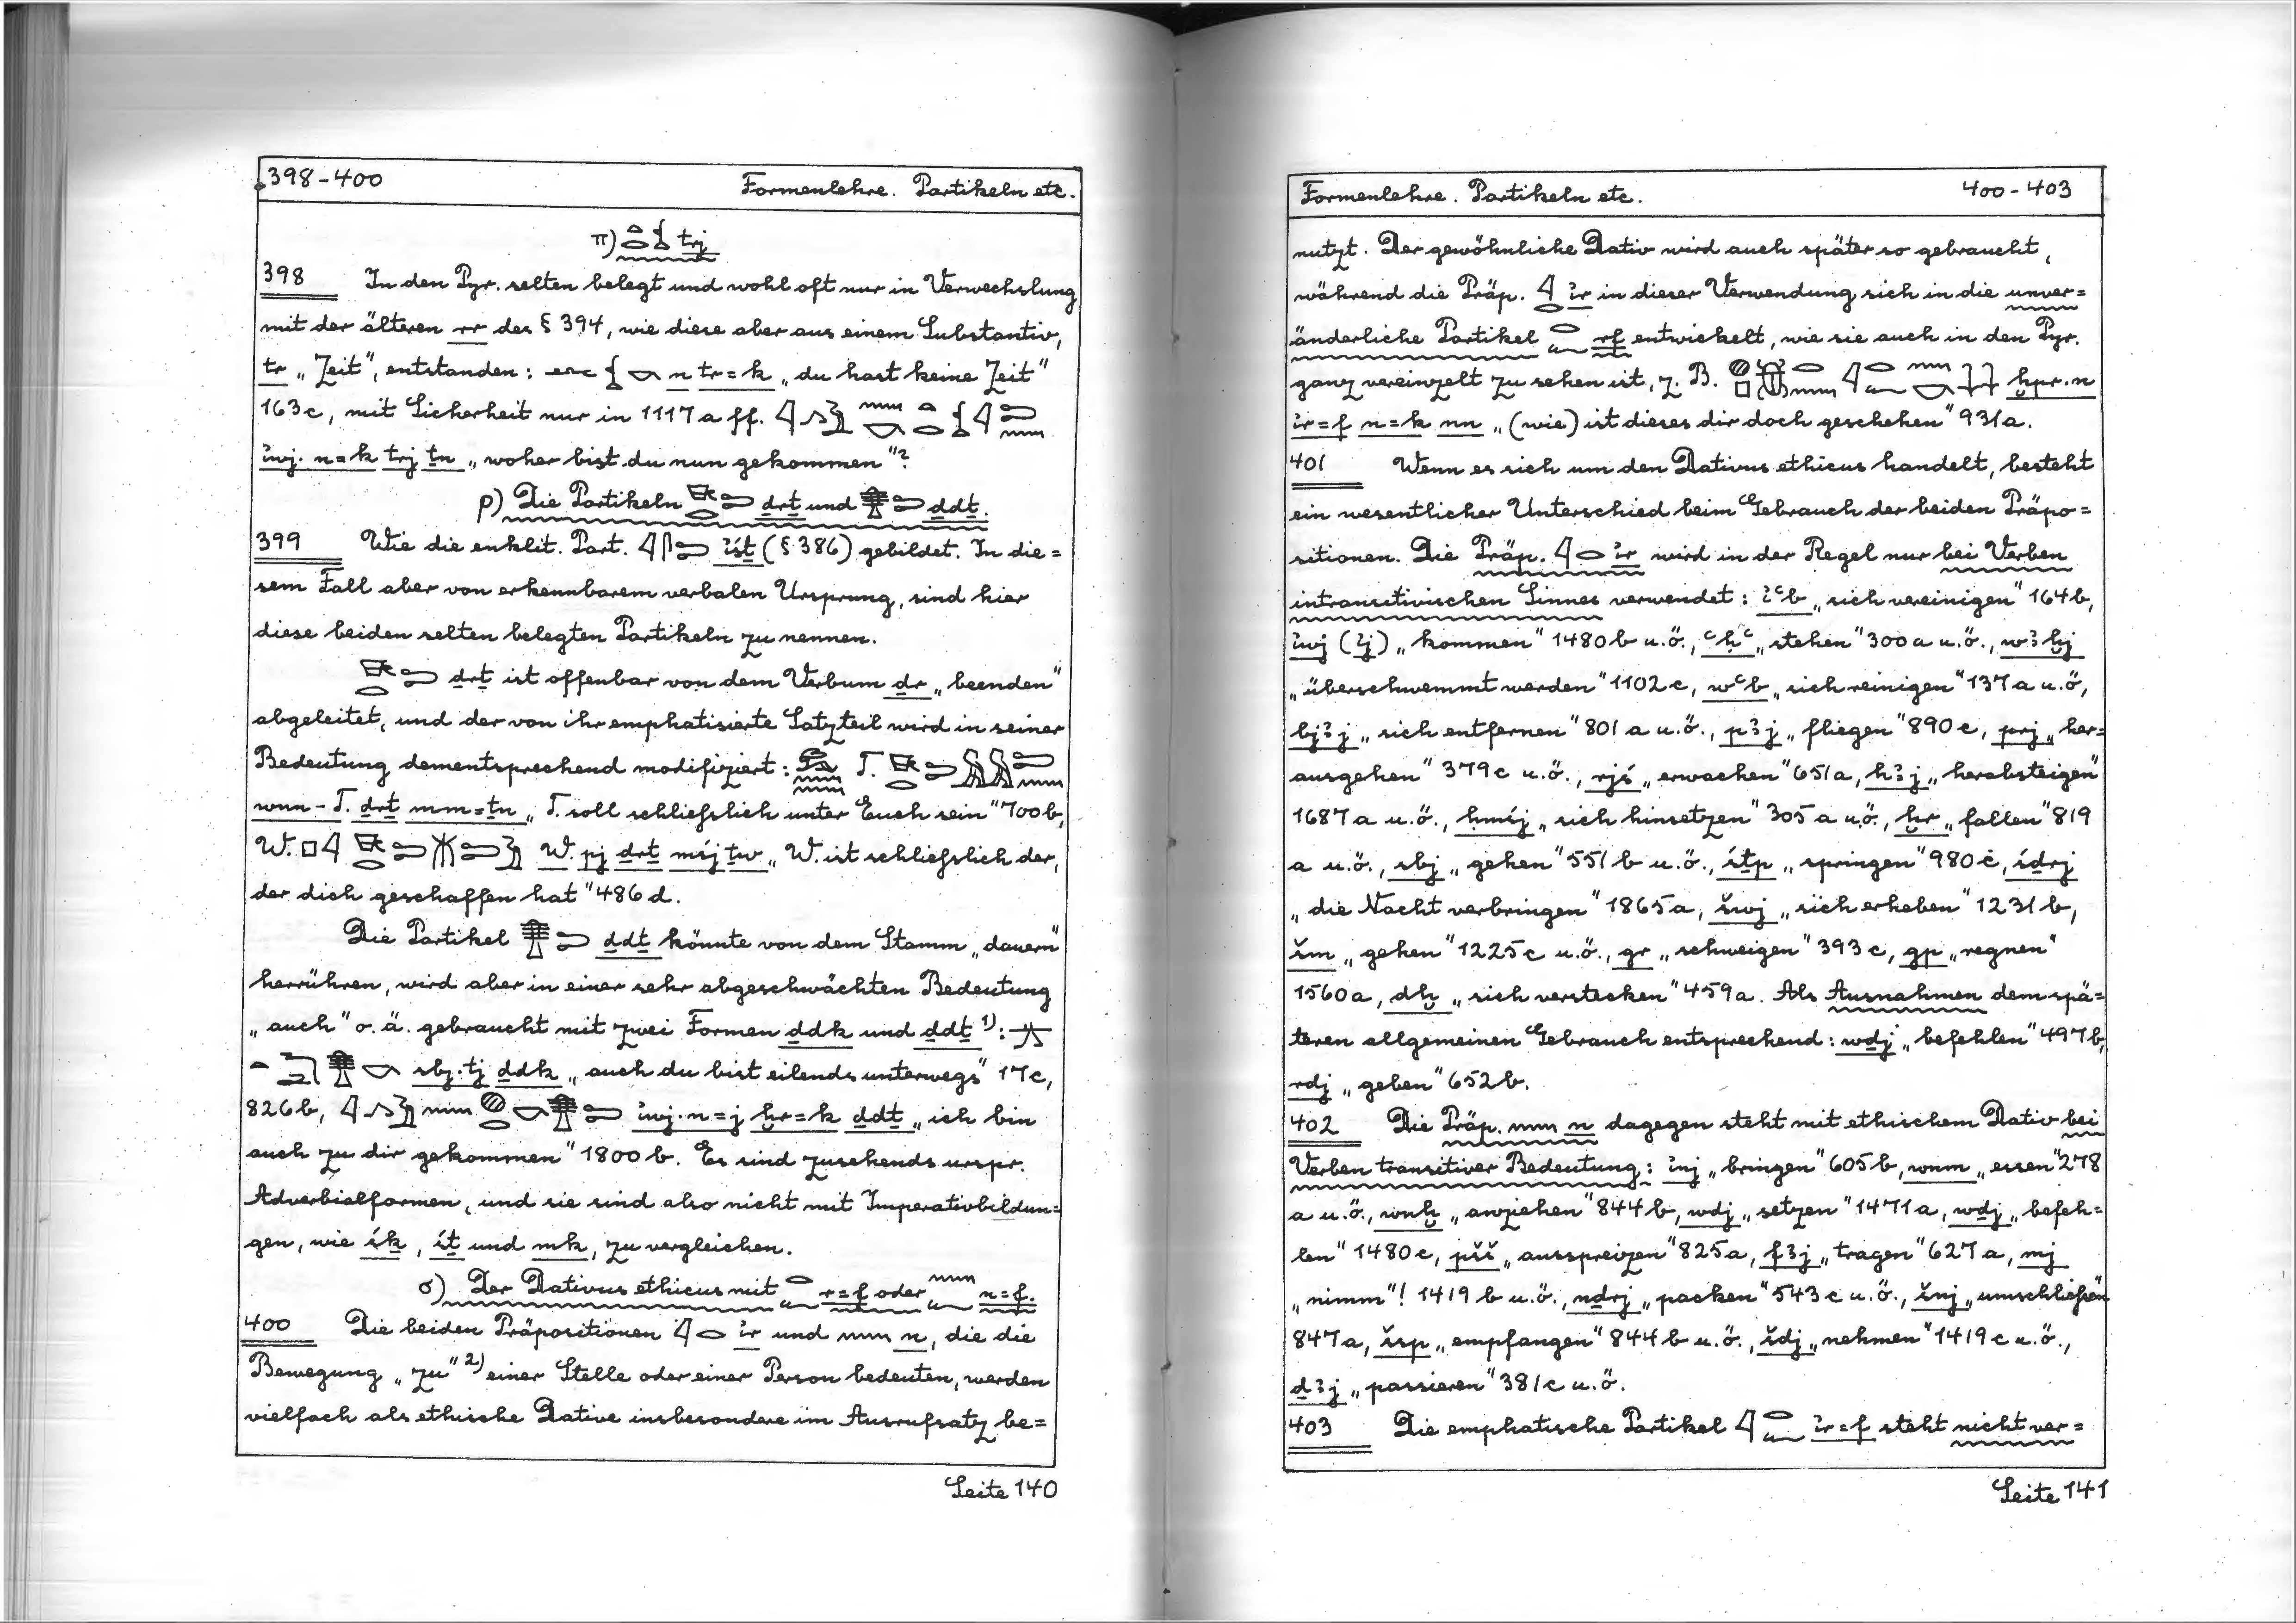 398-400 Formenlehre. Partikeln etc.
π) 𓏏𓂋𓆵 trj
398 In den Pyr. selten belegt und wohl oft nur in Verwechslung
mit der älteren rr des § 394, wie diese aber aus einem Substantiv,
tr „Zeit“, entstanden: n tr=k „du hast keine Zeit“
163c, mit Sicherheit nur in 1117a ff.
i̓wj.n=k trj ṯn „woher bist du nun gekommen“?
ρ) Die Partikeln ḏrṯ und ḏdṯ.
399 Wie die enklit. Part. i̓śṯ (§ 386) gebildet. In die=
sem Fall aber von erkennbarem verbalen Ursprung, sind hier
diese beiden selten belegten Partikeln zu nennen.
ḏrṯ ist offenbar von dem Verbum ḏr „beenden“
abgeleitet, und der von ihr emphatisierte Satzteil wird in seiner
Bedeutung dementsprechend modifiziert: T.
wnn-T. ḏrṯ mm=ṯn „T. soll schließlich unter Euch sein“ 700b,
W. W. pj ḏrṯ mśj ṯw „W. ist schließlich der,
der dich geschaffen hat“ 486d.
Die Partikel ḏdṯ könnte von dem Stamm „dauern“
herrühren, wird aber in einer sehr abgeschwächten Bedeutung
„auch“ o.ä. gebraucht mit zwei Formen ḏdk und ḏdṯ ¹⁾:
sbj.tj ḏdk „auch du bist eilends unterwegs“ 17c,
826b, i̓wj.n=j ḫr=k ḏdṯ „ich bin
auch zu dir gekommen“ 1800b. Es sind zusehends urspr.
Adverbialformen, und sie sind also nicht mit Imperativbildun=
gen, wie śk, śṯ und mk, zu vergleichen.
σ) Der Dativus ethicus mit r=f oder n=f.
400 Die beiden Präpositionen i̓r und n, die die
Bewegung „zu“ ²⁾ einer Stelle oder einer Person bedeuten, werden
vielfach als ethische Dative insbesondere im Ausrufsatz be=
Seite 140
Formenlehre. Partikeln etc. 400-403
nutzt. Der gewöhnliche Dativ wird auch später so gebraucht,
während die Präp. i̓r in dieser Verwendung sich in die unver=
änderliche Partikel rf entwickelt, wie sie auch in den Pyr.
ganz vereinzelt zu sehen ist, z. B. ḫpr.n
i̓r=f n=k nn „(wie) ist dieses dir doch geschehen“ 931a.
401 Wenn es sich um den Dativus ethicus handelt, besteht
ein wesentlicher Unterschied beim Gebrauch der beiden Präpo=
sitionen. Die Präp. i̓r wird in der Regel nur bei Verben
intransitivischen Sinnes verwendet: i̓ꜥb „sich vereinigen“ 164b,
i̓wj (i̓j) „kommen“ 1480b u.ö., ꜥḥꜥ „stehen“ 300a u.ö., wꜣḫj
„überschwemmt werden“ 1102c, wꜥb „sich reinigen“ 137a u.ö,
bjꜣj „sich entfernen“ 801a u.ö., pꜣj „fliegen“ 890c, prj „her=
ausgehen“ 379c u.ö., rjś „erwachen“ 651a, hꜣj „herabsteigen“
1687a u.ö., ḥmśj „sich hinsetzen“ 305a u.ö., ḫr „fallen“ 819
a u.ö., sbj „gehen“ 551b u.ö., śṯp „springen“ 980c, śḏrj
„die Nacht verbringen“ 1865a, šwj „sich erheben“ 1231b,
šm „gehen“ 1225c u.ö., gr „schweigen“ 393c, gp „regnen“
1560a, dḫ „sich verstecken“ 459a. Als Ausnahmen dem spä=
teren allgemeinen Gebrauch entsprechend: wḏj „befehlen“ 497b,
rdj „geben“ 652b.
402 Die Präp. n dagegen steht mit ethischem Dativ bei
Verben transitiver Bedeutung: i̓nj „bringen“ 605b, wnm „essen“ 278
a u.ö., wnḫ „anziehen“ 844b, wdj „setzen“ 1471a, wḏj „befeh=
len“ 1480c, pšš „ausspreizen“ 825a, fꜣj „tragen“ 627a, mj
„nimm“! 1419b u.ö., nḏrj „packen“ 543c u.ö., šnj „umschließen“
847a, šsp „empfangen“ 844b u.ö., šdj „nehmen“ 1419c u.ö.,
ḏꜣj „passieren“ 381c u.ö.
403 Die emphatische Partikel i̓r=f steht nicht ver=
Seite 141